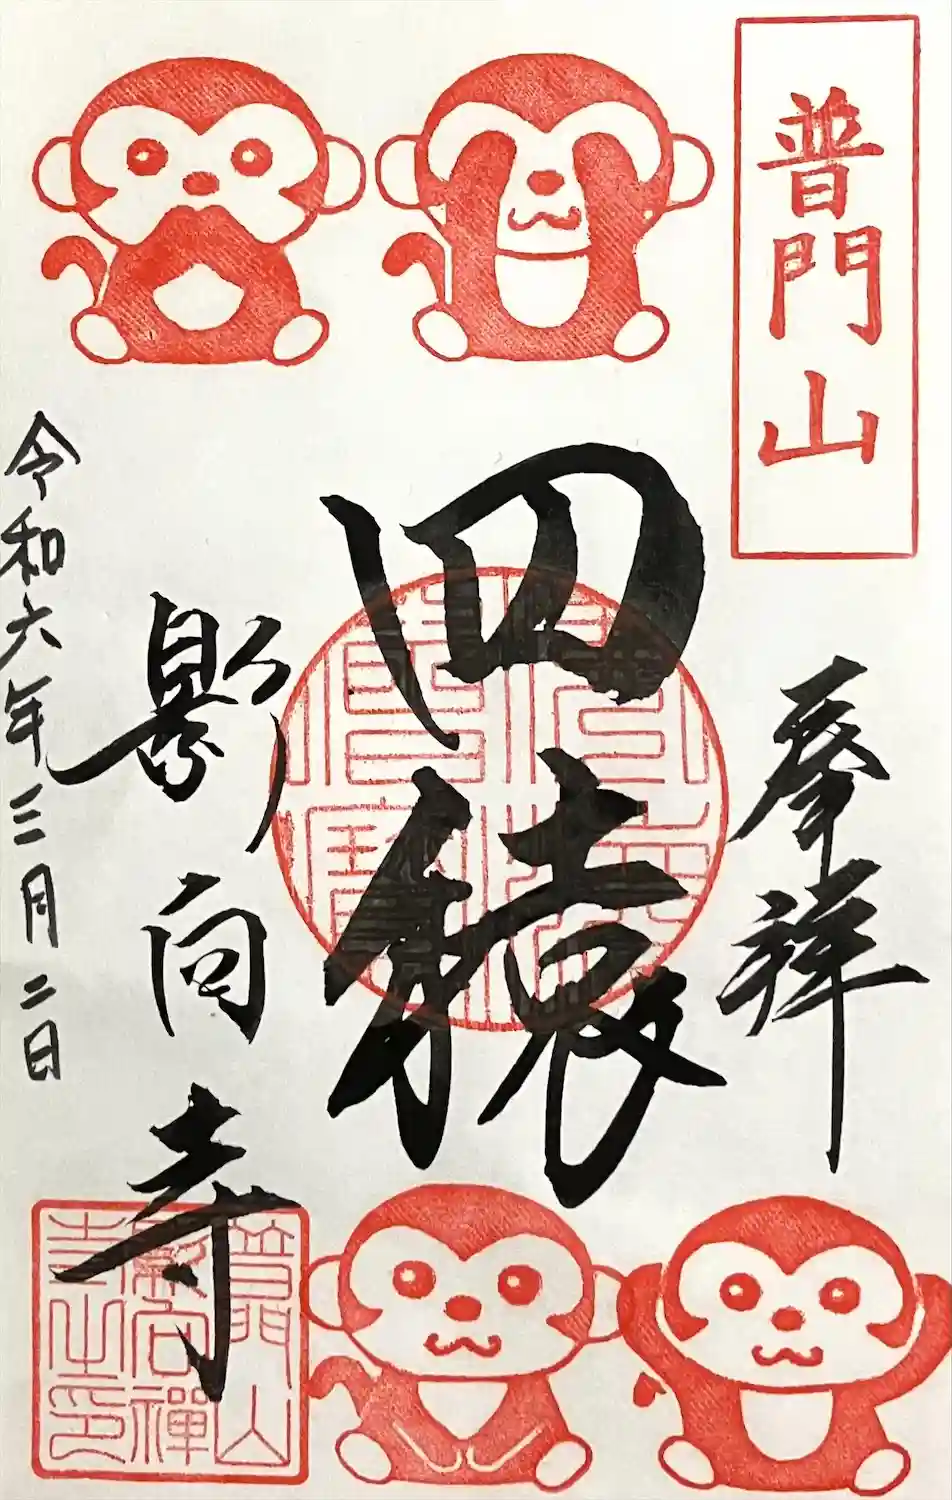 普門山
奉拝
四猿
影向寺
普門山
影向禪
寺之印
令和六年三月二日